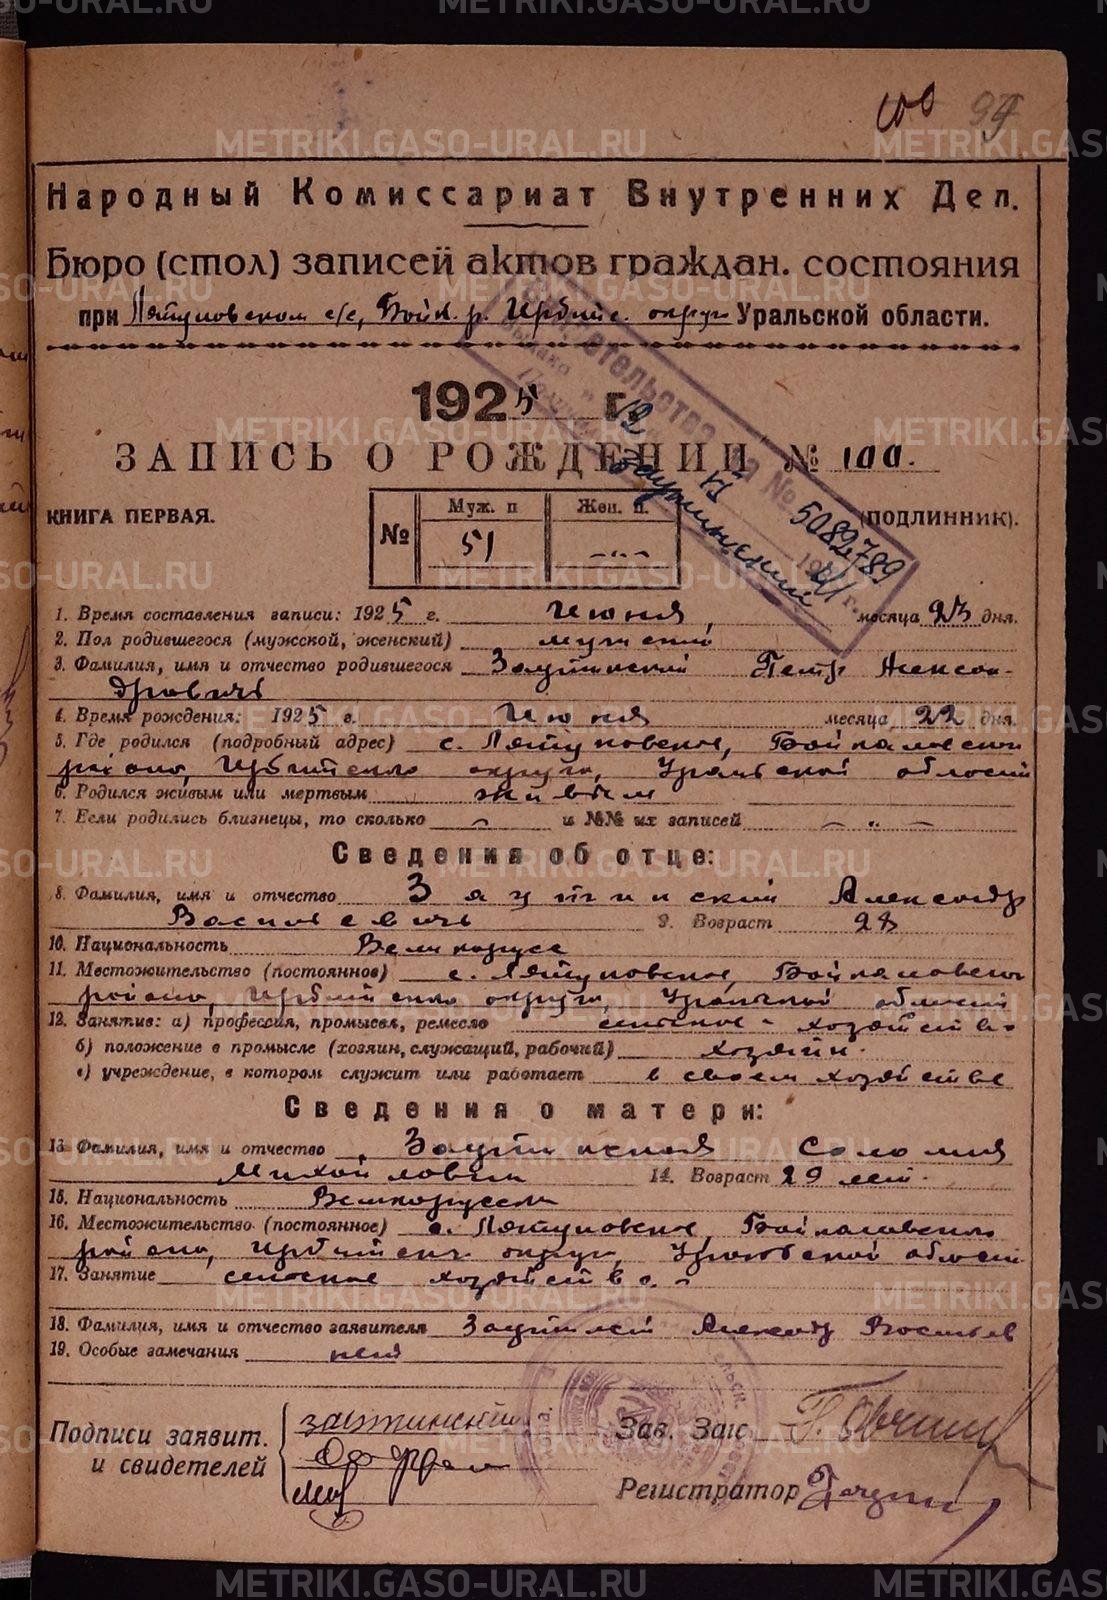 100 99
Народный Комиссариат Внутренних Дел.
Бюро (стол) записей актов граждан. состояния
при Ляпуновском с/с, Байк. р. Ирбитс. округа Уральской области.
1925 г.
ЗАПИСЬ О РОЖДЕНИИ № 100.
КНИГА ПЕРВАЯ. (ПОДЛИННИК).
№ Муж. п Жен. п.
51
№ 5082789
1. Время составления записи: 1925 г. Июня, месяца 23 дня.
2. Пол родившегося (мужской, женский) мужской
3. Фамилия, имя и отчество родившегося Заутинский Петр Алексан-
дровичъ
4. Время рождения: 1925 г. Июня месяца 22 дня.
5. Где родился (подробный адрес) с. Ляпуновское, Байкаловского
района, Ирбитского округа, Уральской области
6. Родился живым или мертвым живым
7. Если родились близнецы, то сколько — и №№ их записей — " —
Сведения об отце:
8. Фамилия, имя и отчество Заутинский Александр
Васильевичъ 9. Возраст 28
10. Национальность Великорусс
11. Местожительство (постоянное) с. Ляпуновское, Байкаловского
района, Ирбитского округа, Уральской области
12. Занятие: а) профессия, промысел, ремесло сельское - хозяйство
б) положение в промысле (хозяин, служащий, рабочий) хозяин.
в) учреждение, в котором служит или работает в своем хозяйстве
Сведения о матери:
13. Фамилия, имя и отчество Заутинская Соломия
Михайловна 14. Возраст 29 лет.
15. Национальность Великорусска
16. Местожительство (постоянное) с. Ляпуновское, Байкаловского
района, Ирбитск. округа, Уральской области
17. Занятие сельское хозяйство.
18. Фамилия, имя и отчество заявителя Александр Васильев
19. Особые замечания нет
Подписи заявит. Заутинский Зав. Загс
и свидетелей
Регистратор
METRIKI.GASO-URAL.RU